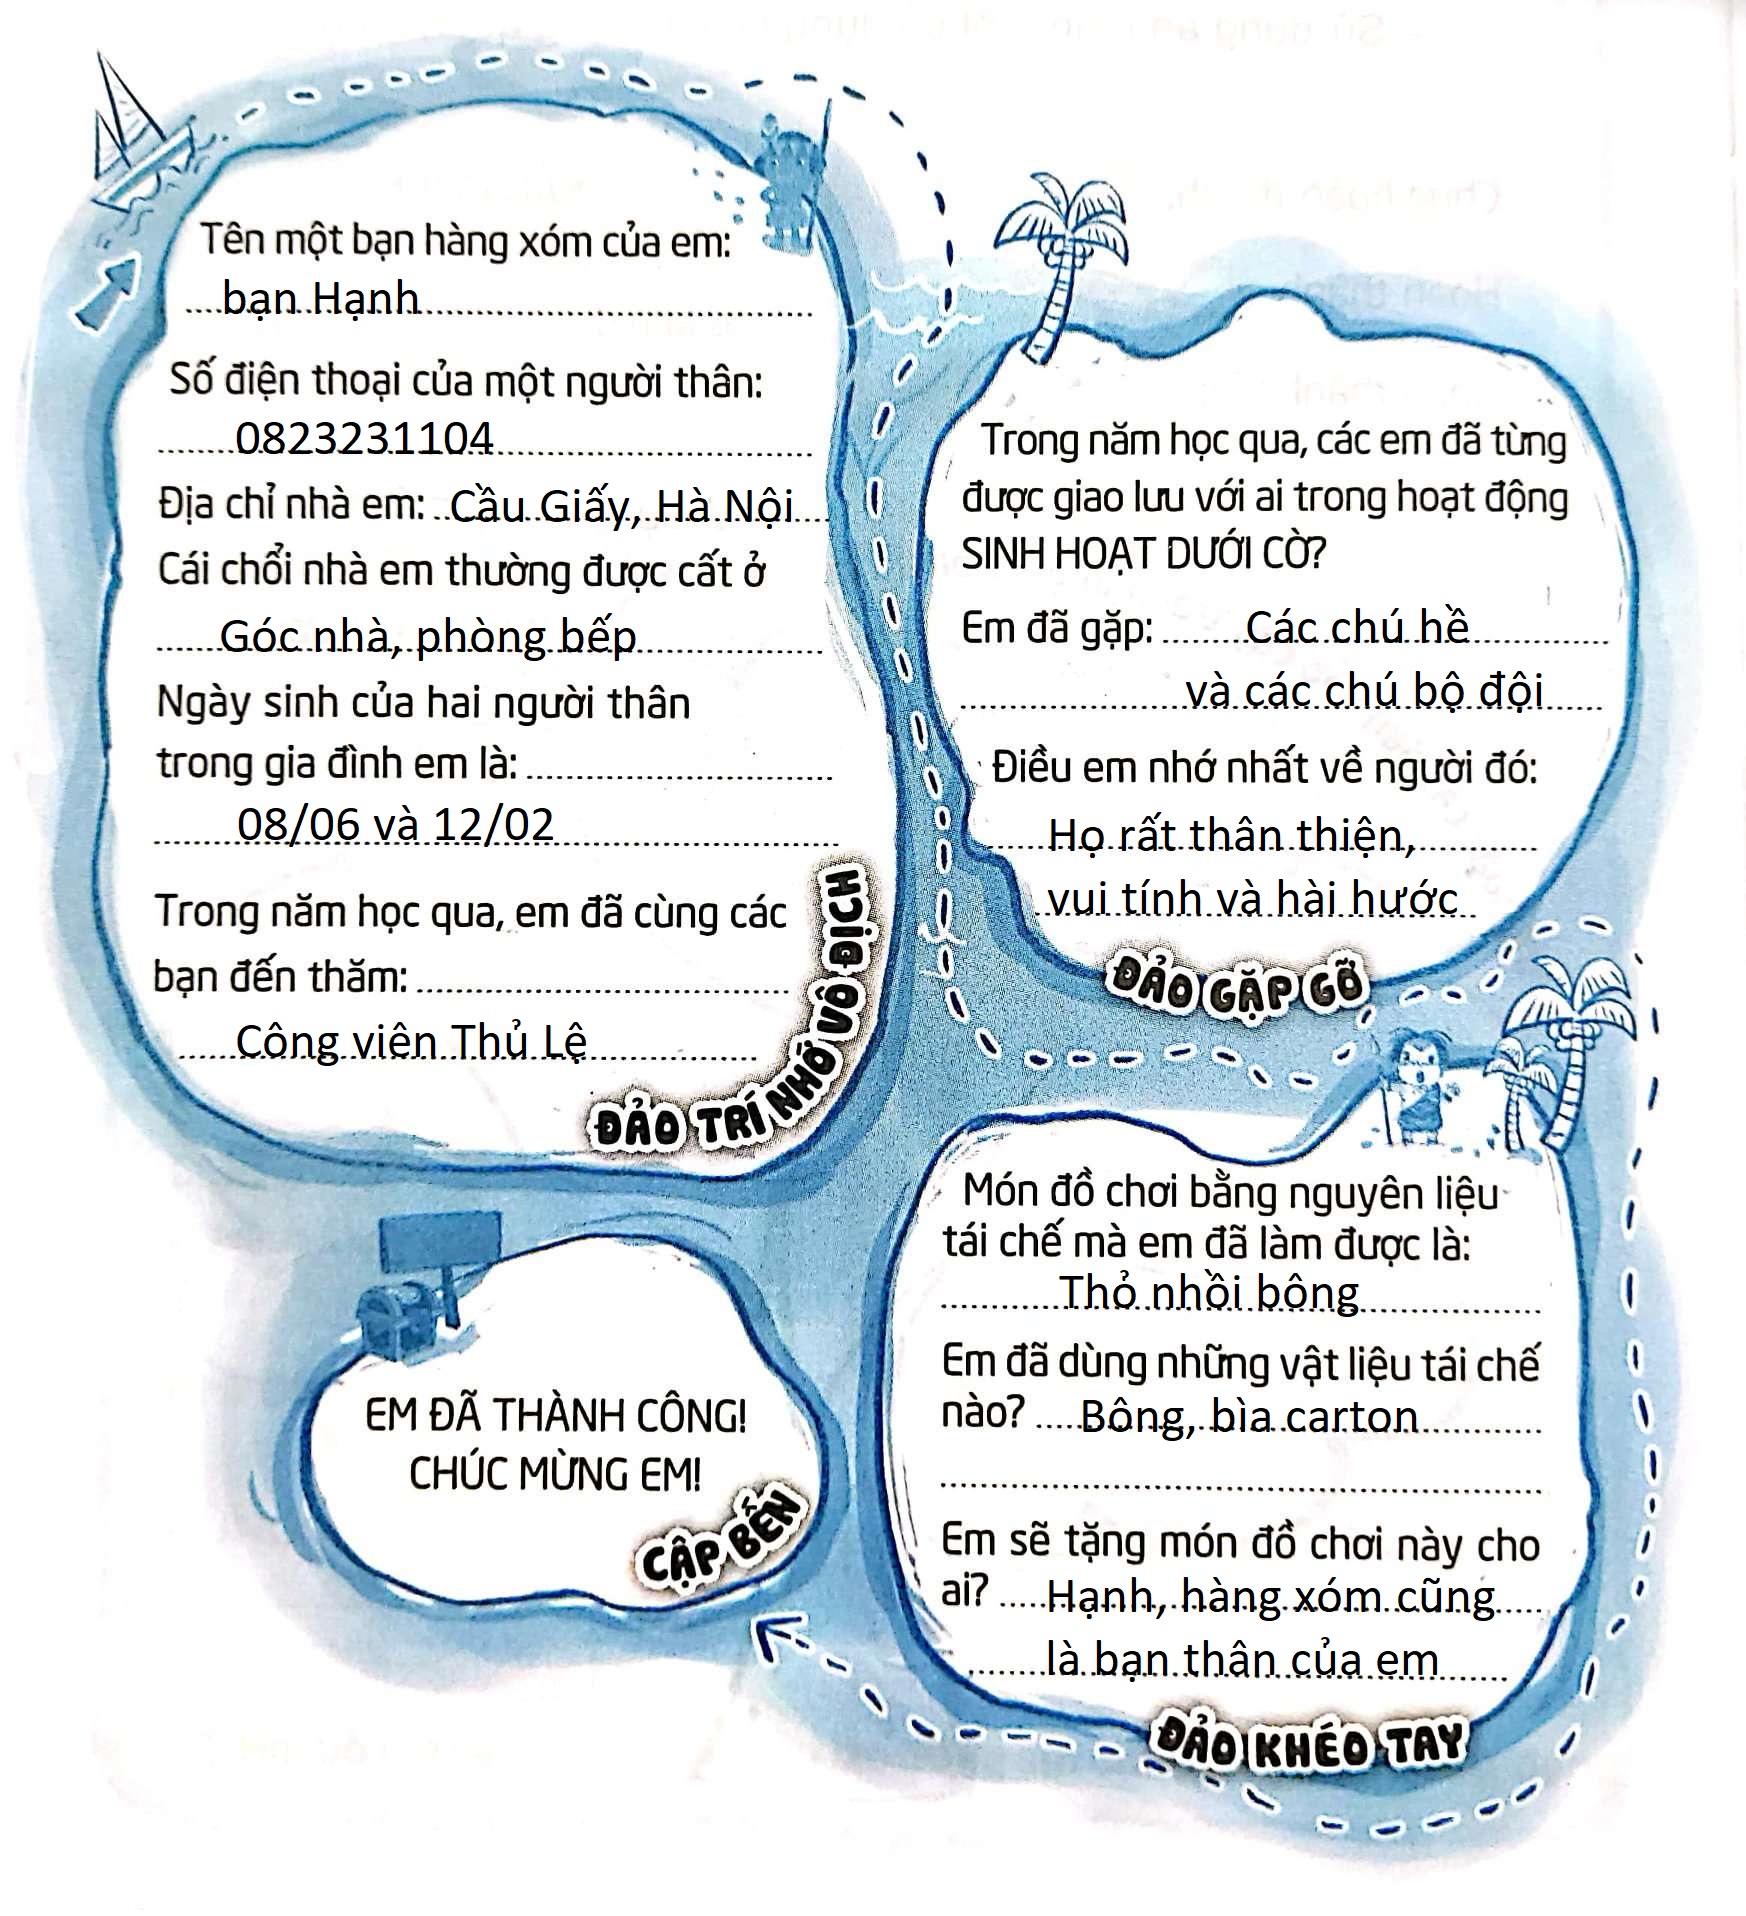 Tên một bạn hàng xóm của em:
bạn Hạnh
Số điện thoại của một người thân:
0823231104
Địa chỉ nhà em: Cầu Giấy, Hà Nội
Cái chổi nhà em thường được cất ở
Góc nhà, phòng bếp
Ngày sinh của hai người thân
trong gia đình em là:
08/06 và 12/02
Trong năm học qua, em đã cùng các
bạn đến thăm:
Công viên Thủ Lệ
ĐẢO TRÍ NHỚ VÔ ĐỊCH
Trong năm học qua, các em đã từng
được giao lưu với ai trong hoạt động
SINH HOẠT DƯỚI CỜ?
Em đã gặp: Các chú hề
và các chú bộ đội
Điều em nhớ nhất về người đó:
Họ rất thân thiện,
vui tính và hài hước
ĐẢO GẶP GỠ
Món đồ chơi bằng nguyên liệu
tái chế mà em đã làm được là:
Thỏ nhồi bông
Em đã dùng những vật liệu tái chế
nào? Bông, bìa carton
Em sẽ tặng món đồ chơi này cho
ai? Hạnh, hàng xóm cũng
là bạn thân của em
ĐẢO KHÉO TAY
EM ĐÃ THÀNH CÔNG!
CHÚC MỪNG EM!
CẬP BẾN